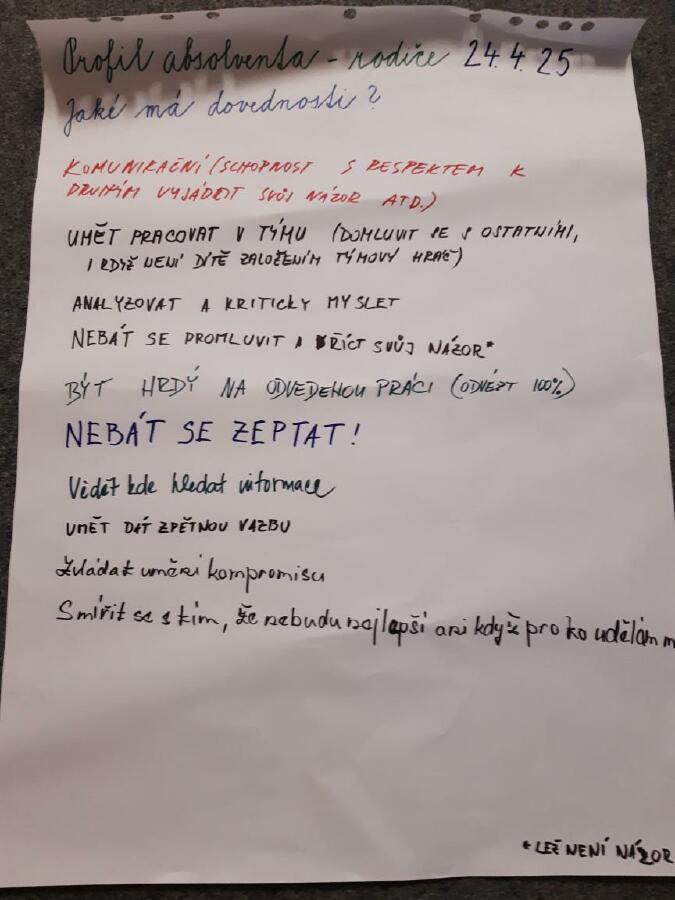 Profil absolventa - rodiče 24. 4. 25
Jaké má dovednosti?
KOMUNIKAČNÍ (SCHOPNOST S RESPEKTEM K
DRUHÝM VYJÁDŘIT SVŮJ NÁZOR ATD.)
UMĚT PRACOVAT V TÝMU (DOMLUVIT SE S OSTATNÍMI,
I KDYŽ NENÍ DÍTĚ ZALOŽENÍM TÝMOVÝ HRÁČ)
ANALYZOVAT A KRITICKY MYSLET
NEBÁT SE PROMLUVIT A ŘÍCT SVŮJ NÁZOR*
BÝT HRDÝ NA ODVEDENOU PRÁCI (ODVÉST 100%)
NEBÁT SE ZEPTAT!
Vědět kde hledat informace
UMĚT DÁT ZPĚTNOU VAZBU
Zvládat umění kompromisu
Smířit se s tím, že nebudu nejlepší ani když pro to udělám m
*LEŽ NENÍ NÁZOR